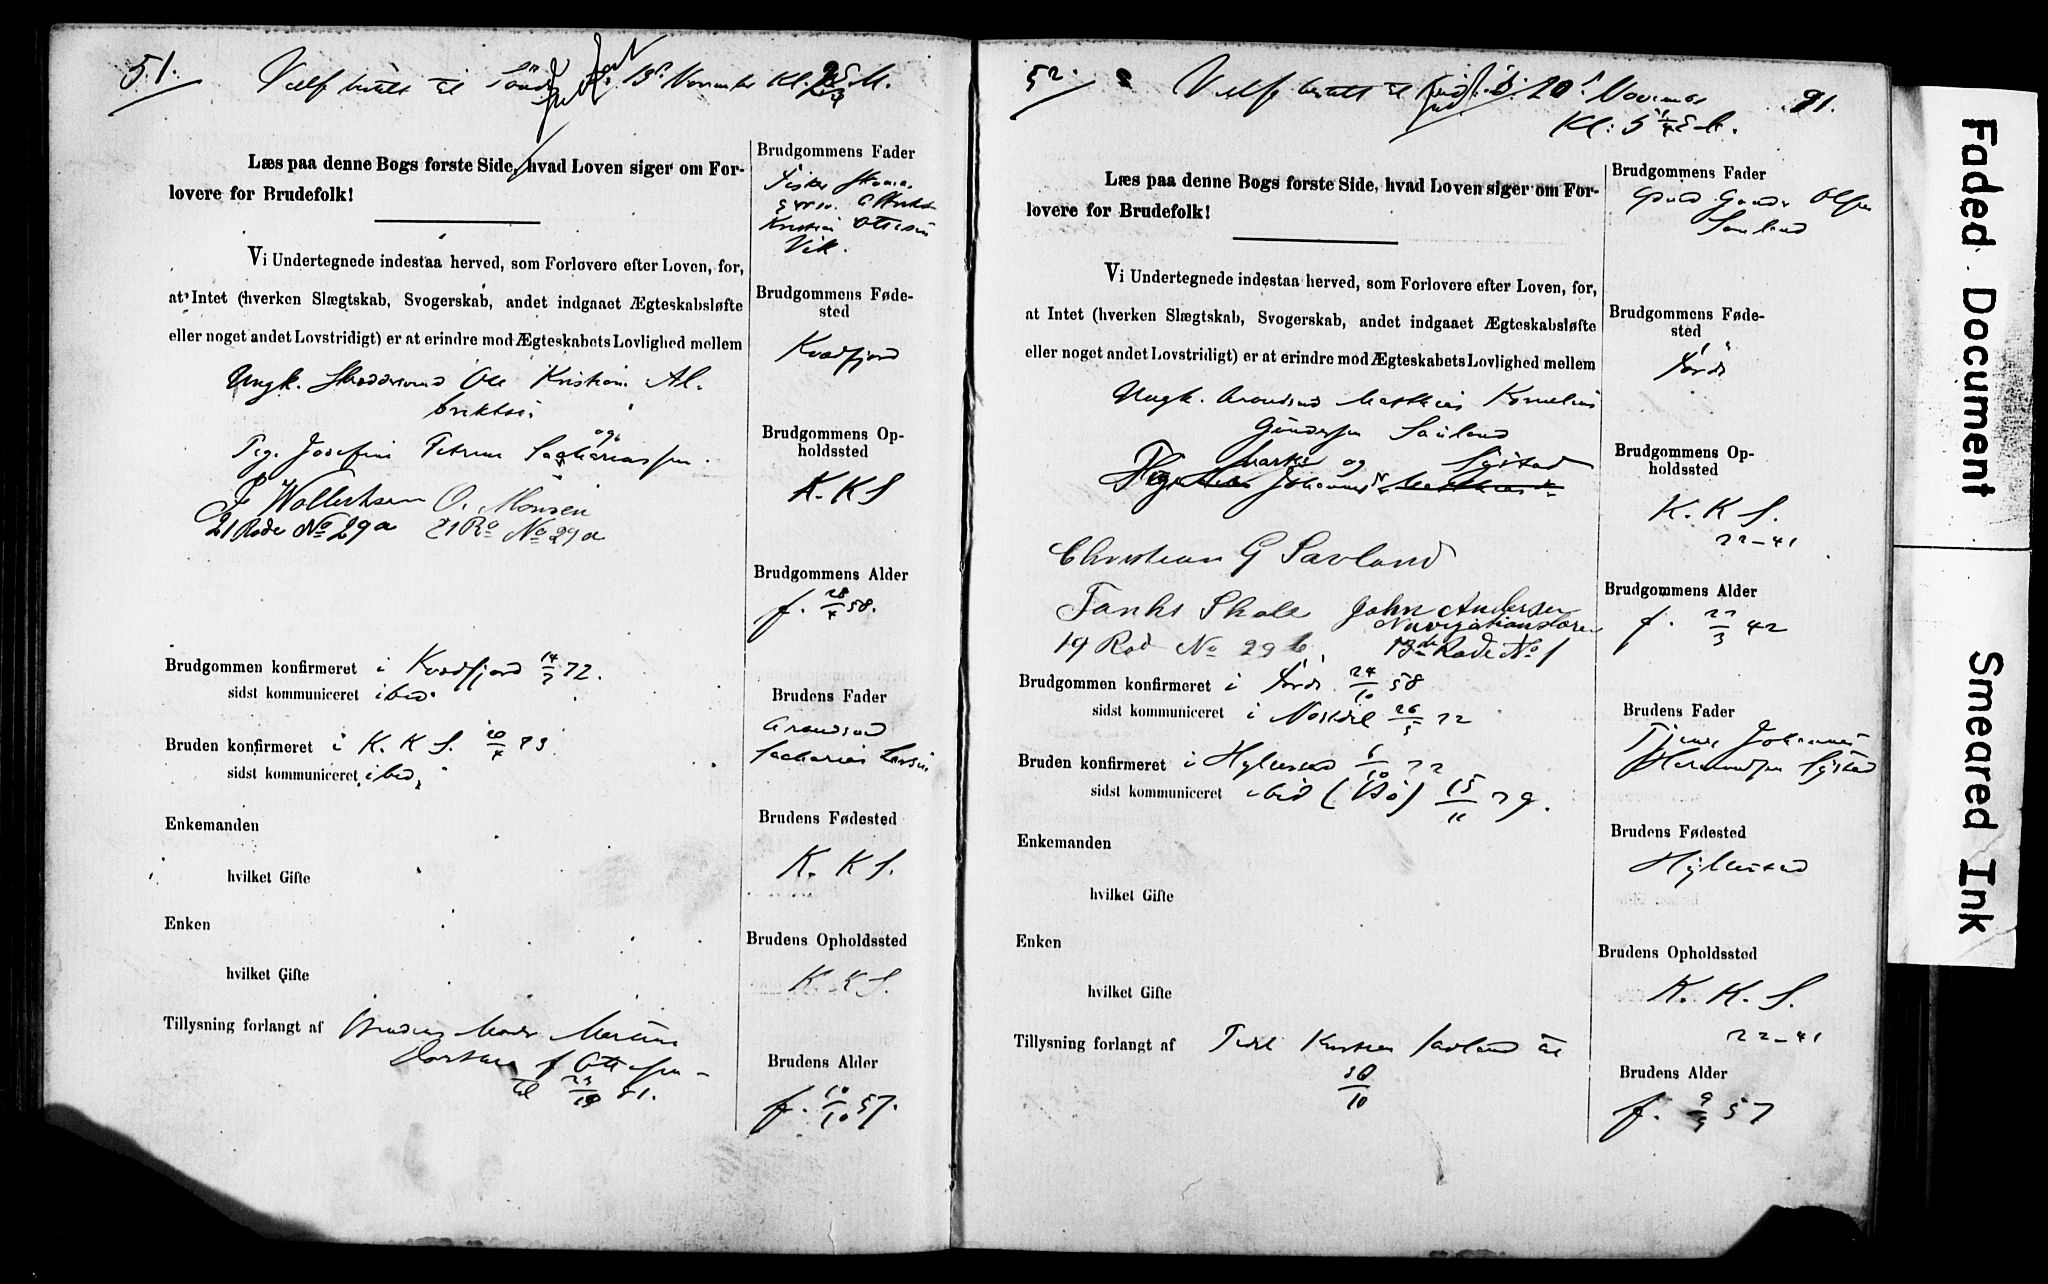 51.
Vielf bestilt til 13de November Kl. M.
Læs paa denne Bogs første Side, hvad Loven siger om For-
lovere for Brudefolk!
Vi Undertegnede indestaa herved, som Forlovere efter Loven, for,
at Intet (hverken Slægtskab, Svogerskab, andet indgaaet Ægteskabsløfte
eller noget andet Lovstridigt) er at erindre mod Ægteskabets Lovlighed mellem
Ungk. Ole Kristian Al-
briktsen
og
Pig. Josefine Petrine Sachariassen.
Wollertsen O. Monsen
21 Rode No 29a 21 Ro No 29a
Brudgommen konfirmeret i Kvædfjord 14/7 72.
sidst kommuniceret ibid
Bruden konfirmeret i K. K S. 20/4 73
sidst kommuniceret ibid
Enkemanden
hvilket Gifte
Enken
hvilket Gifte
Tillysning forlangt af Brudens Moder
til 81.
Brudgommens Fader
Fisker
Kristian Ottesen
Vik.
Brudgommens Føde-
sted
Kvædfjord
Brudgommens Op-
holdssted
K. K S
Brudgommens Alder
f. 28/4 58.
Brudens Fader
Arbeidsmd
Sacharias Larsen
Brudens Fødested
K. K S.
Brudens Opholdssted
K. K S.
Brudens Alder
f. 10/10 57.
52.
Vielf bestilt til 20 November 91.
Kl: 5 1/4
Læs paa denne Bogs første Side, hvad Loven siger om For-
lovere for Brudefolk!
Vi Undertegnede indestaa herved, som Forlovere efter Loven, for,
at Intet (hverken Slægtskab, Svogerskab, andet indgaaet Ægteskabsløfte
eller noget andet Lovstridigt) er at erindre mod Ægteskabets Lovlighed mellem
Ungk. Matthias Kornelius
Gundersen Sauland
og Systad
Pige Johannesd.
Christian G Savland
Tanks Skole John Andersen
Navigationslærer
19 Rod No 29 b. 13de Rode No 1
Brudgommen konfirmeret i Førde 24/10 58
sidst kommuniceret i 26/5 72
Bruden konfirmeret i Hyllestad 6/10 72
sidst kommuniceret ibid (Bø) 15/11 79.
Enkemanden
hvilket Gifte
Enken
hvilket Gifte
Tillysning forlangt af Kristian Savland til
30/10
Brudgommens Fader
Olsen
Sauland
Brudgommens Føde-
sted
Førde
Brudgommens Op-
holdssted
K. K S.
22-41
Brudgommens Alder
f. 22/3 42
Brudens Fader
Johannes
Hermundsen Systad
Brudens Fødested
Hyllestad
Brudens Opholdssted
K. K. S.
22-41
Brudens Alder
f. 9/9 57
Faded Document
Smeared Ink